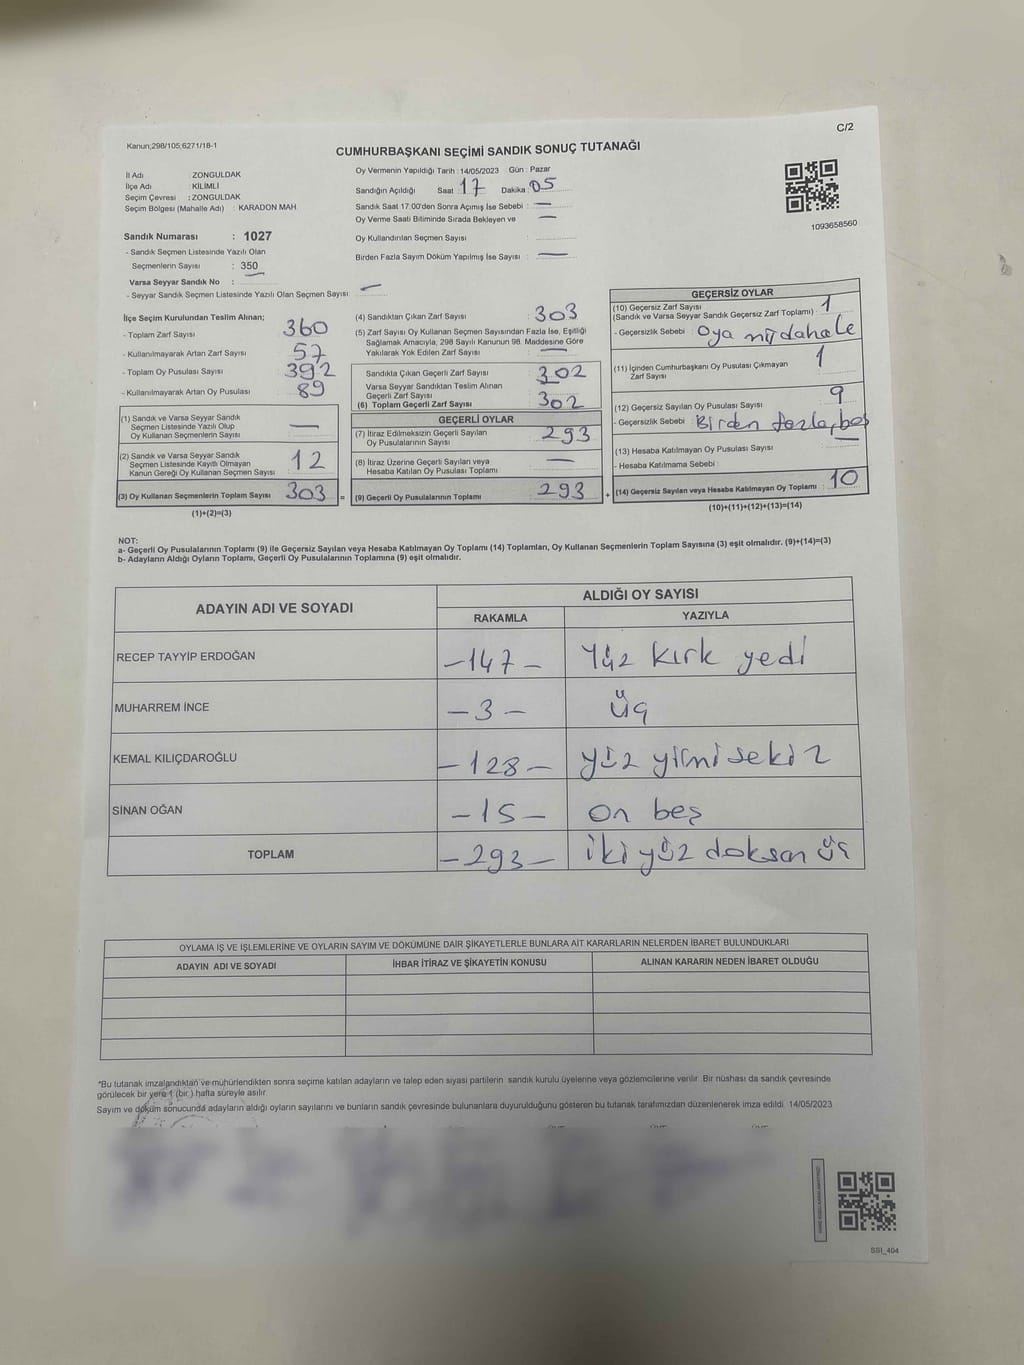 C/2
Kanun;298/105;6271/18-1
CUMHURBAŞKANI SEÇİMİ SANDIK SONUÇ TUTANAĞI
İl Adı : ZONGULDAK
İlçe Adı : KİLİMLİ
Seçim Çevresi : ZONGULDAK
Seçim Bölgesi (Mahalle Adı) : KARADON MAH.
Sandık Numarası : 1027
- Sandık Seçmen Listesinde Yazılı Olan
Seçmenlerin Sayısı : 350
Varsa Seyyar Sandık No : —
- Seyyar Sandık Seçmen Listesinde Yazılı Olan Seçmen Sayısı: —
Oy Vermenin Yapıldığı Tarih : 14/05/2023 Gün : Pazar
Sandığın Açıldığı Saat : 17 Dakika : 05
Sandık Saat 17:00'den Sonra Açımış İse Sebebi : —
Oy Verme Saati Bitiminde Sırada Bekleyen ve —
Oy Kullandırılan Seçmen Sayısı :
Birden Fazla Sayım Döküm Yapılmış İse Sayısı : —
1093658560
İlçe Seçim Kurulundan Teslim Alınan;
- Toplam Zarf Sayısı : 360
- Kullanılmayarak Artan Zarf Sayısı : 57
- Toplam Oy Pusulası Sayısı : 392
- Kullanılmayarak Artan Oy Pusulası : 89
(1) Sandık ve Varsa Seyyar Sandık
Seçmen Listesinde Yazılı Olup
Oy Kullanan Seçmenlerin Sayısı : —
(2) Sandık ve Varsa Seyyar Sandık
Seçmen Listesinde Kayıtlı Olmayan
Kanun Gereği Oy Kullanan Seçmen Sayısı : 12
(3) Oy Kullanan Seçmenlerin Toplam Sayısı : 303 =
(1)+(2)=(3)
(4) Sandıktan Çıkan Zarf Sayısı : 303
(5) Zarf Sayısı Oy Kullanan Seçmen Sayısından Fazla İse, Eşitliği
Sağlamak Amacıyla, 298 Sayılı Kanunun 98. Maddesine Göre
Yakılarak Yok Edilen Zarf Sayısı : —
Sandıkta Çıkan Geçerli Zarf Sayısı : 302
Varsa Seyyar Sandıktan Teslim Alınan
Geçerli Zarf Sayısı :
(6) Toplam Geçerli Zarf Sayısı : 302
GEÇERLİ OYLAR
(7) İtiraz Edilmeksizin Geçerli Sayılan
Oy Pusulasının Sayısı : 293
(8) İtiraz Üzerine Geçerli Sayılan veya
Hesaba Katılan Oy Pusulası Toplamı : —
(9) Geçerli Oy Pusulalarının Toplamı : 293 +
GEÇERSİZ OYLAR
(10) Geçersiz Zarf Sayısı
(Sandık ve Varsa Seyyar Sandık Geçersiz Zarf Toplamı) : 1
- Geçersizlik Sebebi : Oya müdahale
(11) İçinden Cumhurbaşkanı Oy Pusulası Çıkmayan
Zarf Sayısı : 1
(12) Geçersiz Sayılan Oy Pusulası Sayısı : 9
- Geçersizlik Sebebi : Birden fazla, boş
(13) Hesaba Katılmayan Oy Pusulası Sayısı : —
- Hesaba Katılmama Sebebi :
(14) Geçersiz Sayılan veya Hesaba Katılmayan Oy Toplamı : 10
(10)+(11)+(12)+(13)=(14)
NOT:
a- Geçerli Oy Pusulalarının Toplamı (9) ile Geçersiz Sayılan veya Hesaba Katılmayan Oy Toplamı (14) Toplamları, Oy Kullanan Seçmenlerin Toplam Sayısına (3) eşit olmalıdır. (9)+(14)=(3)
b- Adayların Aldığı Oyların Toplamı, Geçerli Oy Pusulalarının Toplamına (9) eşit olmalıdır.
ADAYIN ADI VE SOYADI ALDIĞI OY SAYISI
RAKAMLA YAZIYLA
RECEP TAYYİP ERDOĞAN -147- Yüz kırk yedi
MUHARREM İNCE -3- üç
KEMAL KILIÇDAROĞLU -128- yüz yirmi sekiz
SİNAN OĞAN -15- on beş
TOPLAM -293- iki yüz doksan üç
OYLAMA İŞ VE İŞLEMLERİNE VE OYLARIN SAYIM VE DÖKÜMÜNE DAİR ŞİKAYETLERLE BUNLARA AİT KARARLARIN NELERDEN İBARET BULUNDUKLARI
ADAYIN ADI VE SOYADI İHBAR İTİRAZ VE ŞİKAYETİN KONUSU ALINAN KARARIN NEDEN İBARET OLDUĞU
*Bu tutanak imzalandıktan ve mühürlendikten sonra seçime katılan adayların ve talep eden siyasi partilerin sandık kurulu üyelerine veya gözlemcilerine verilir. Bir nüshası da sandık çevresinde
görülecek bir yere 1 (bir) hafta süreyle asılır.
Sayım ve döküm sonucunda adayların aldığı oyların sayılarını ve bunların sandık çevresinde bulunanlara duyurulduğunu gösteren bu tutanak tarafımızdan düzenlenerek imza edildi. 14/05/2023
SSI_404